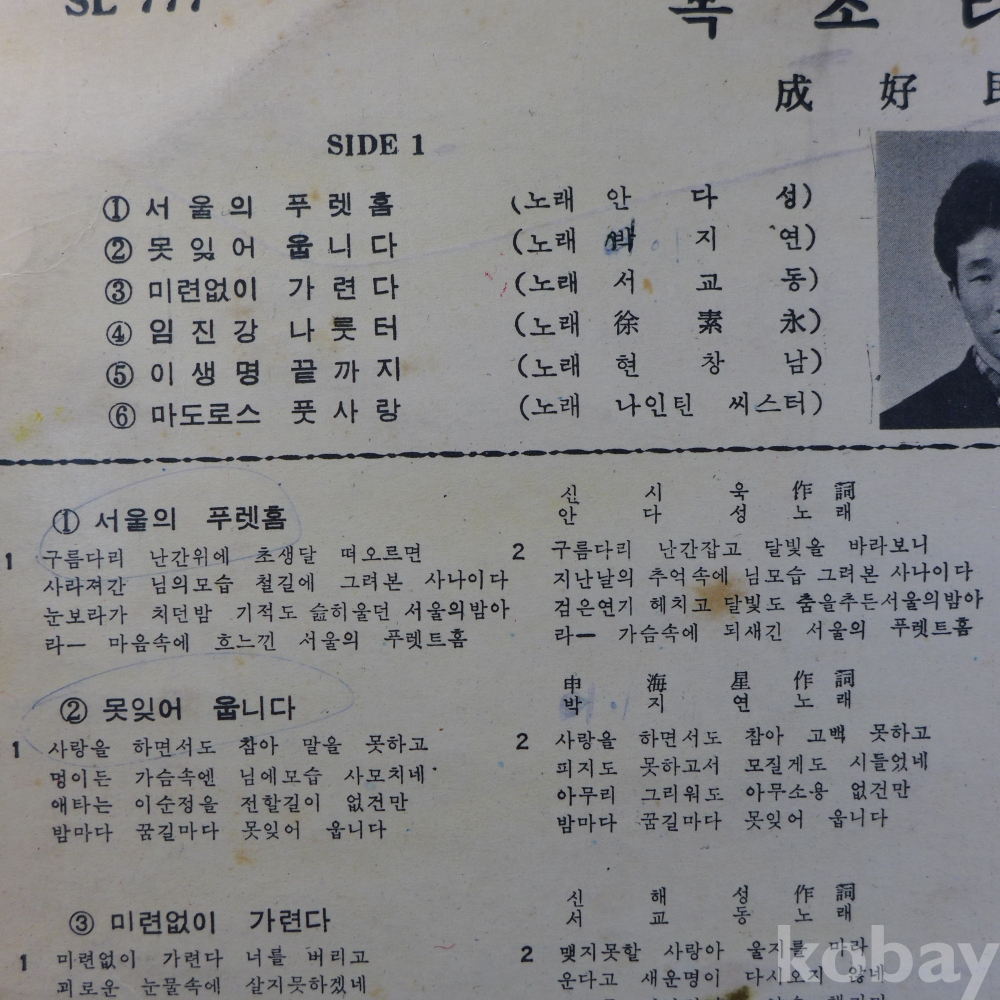 SL 777
목 소
成 好
SIDE 1
① 서 울 의 푸 렛 홈 (노래 안 다 성)
② 못 잊 어 웁 니 다 (노래 박 지 연)
③ 미련없이 가 련 다 (노래 서 교 동)
④ 임 진 강 나 룻 터 (노래 徐 素 永)
⑤ 이 생 명 끝 까 지 (노래 현 창 남)
⑥ 마도로스 풋 사 랑 (노래 나인틴 씨스터)
① 서울의 푸렛홈
신 시 욱 作 詞
안 다 성 노 래
1 구름다리 난간위에 초생달 떠오르면
사라져간 님의모습 철길에 그려본 사나이다
눈보라가 치던밤 기적도 슲히울던 서울의밤아
라— 마음속에 흐느낀 서울의 푸렛트홈
2 구름다리 난간잡고 달빛을 바라보니
지난날의 추억속에 님모습 그려본 사나이다
검은연기 헤치고 달빛도 춤을추든서울의밤아
라— 가슴속에 되새긴 서울의 푸렛트홈
② 못잊어 웁니다
申 海 星 作 詞
박 지 연 노 래
1 사랑을 하면서도 참아 말을 못하고
멍이든 가슴속엔 님에모습 사모치네
애타는 이순정을 전할길이 없건만
밤마다 꿈길마다 못잊어 웁니다
2 사랑을 하면서도 참아 고백 못하고
피지도 못하고서 모질게도 시들었네
아무리 그리워도 아무소용 없건만
밤마다 꿈길마다 못잊어 웁니다
③ 미련없이 가련다
신 해 성 作 詞
서 교 동 노 래
1 미련없이 가련다 너를 버리고
괴로운 눈물속에 살지못하겠네
2 맺지못할 사랑아 울지를 마라
운다고 새운명이 다시오지 않네
kobay